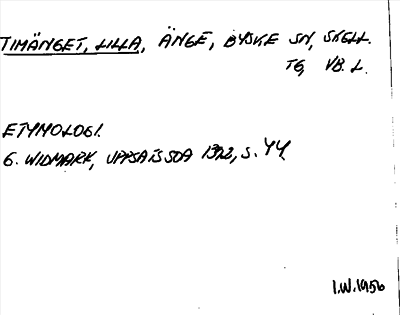 TIMÄNGET, LILLA, ÄNGE, BYSKE SN, SKELL.
TG, VB. L.
ETYMOLOGI.
G. WIDMARK, UPPSATS SOA 1322, S. 44.
I.W. 1956